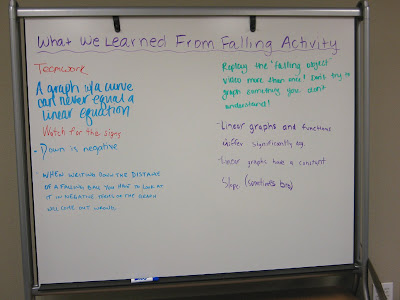 What We Learned From Falling Activity
Teamwork
A graph w/a curve
can never equal a
linear equation
Watch for the signs
- Down is negative
- When writing down the distance
of a falling ball you have to look at
it in negative terms or the graph
will come out wrong
Replay the "falling object"
video more than once! Don't try to
graph something you don't
understand!
- Linear graphs and functions
differ significantly
- Linear graphs have a constant
Slope (sometimes zero)